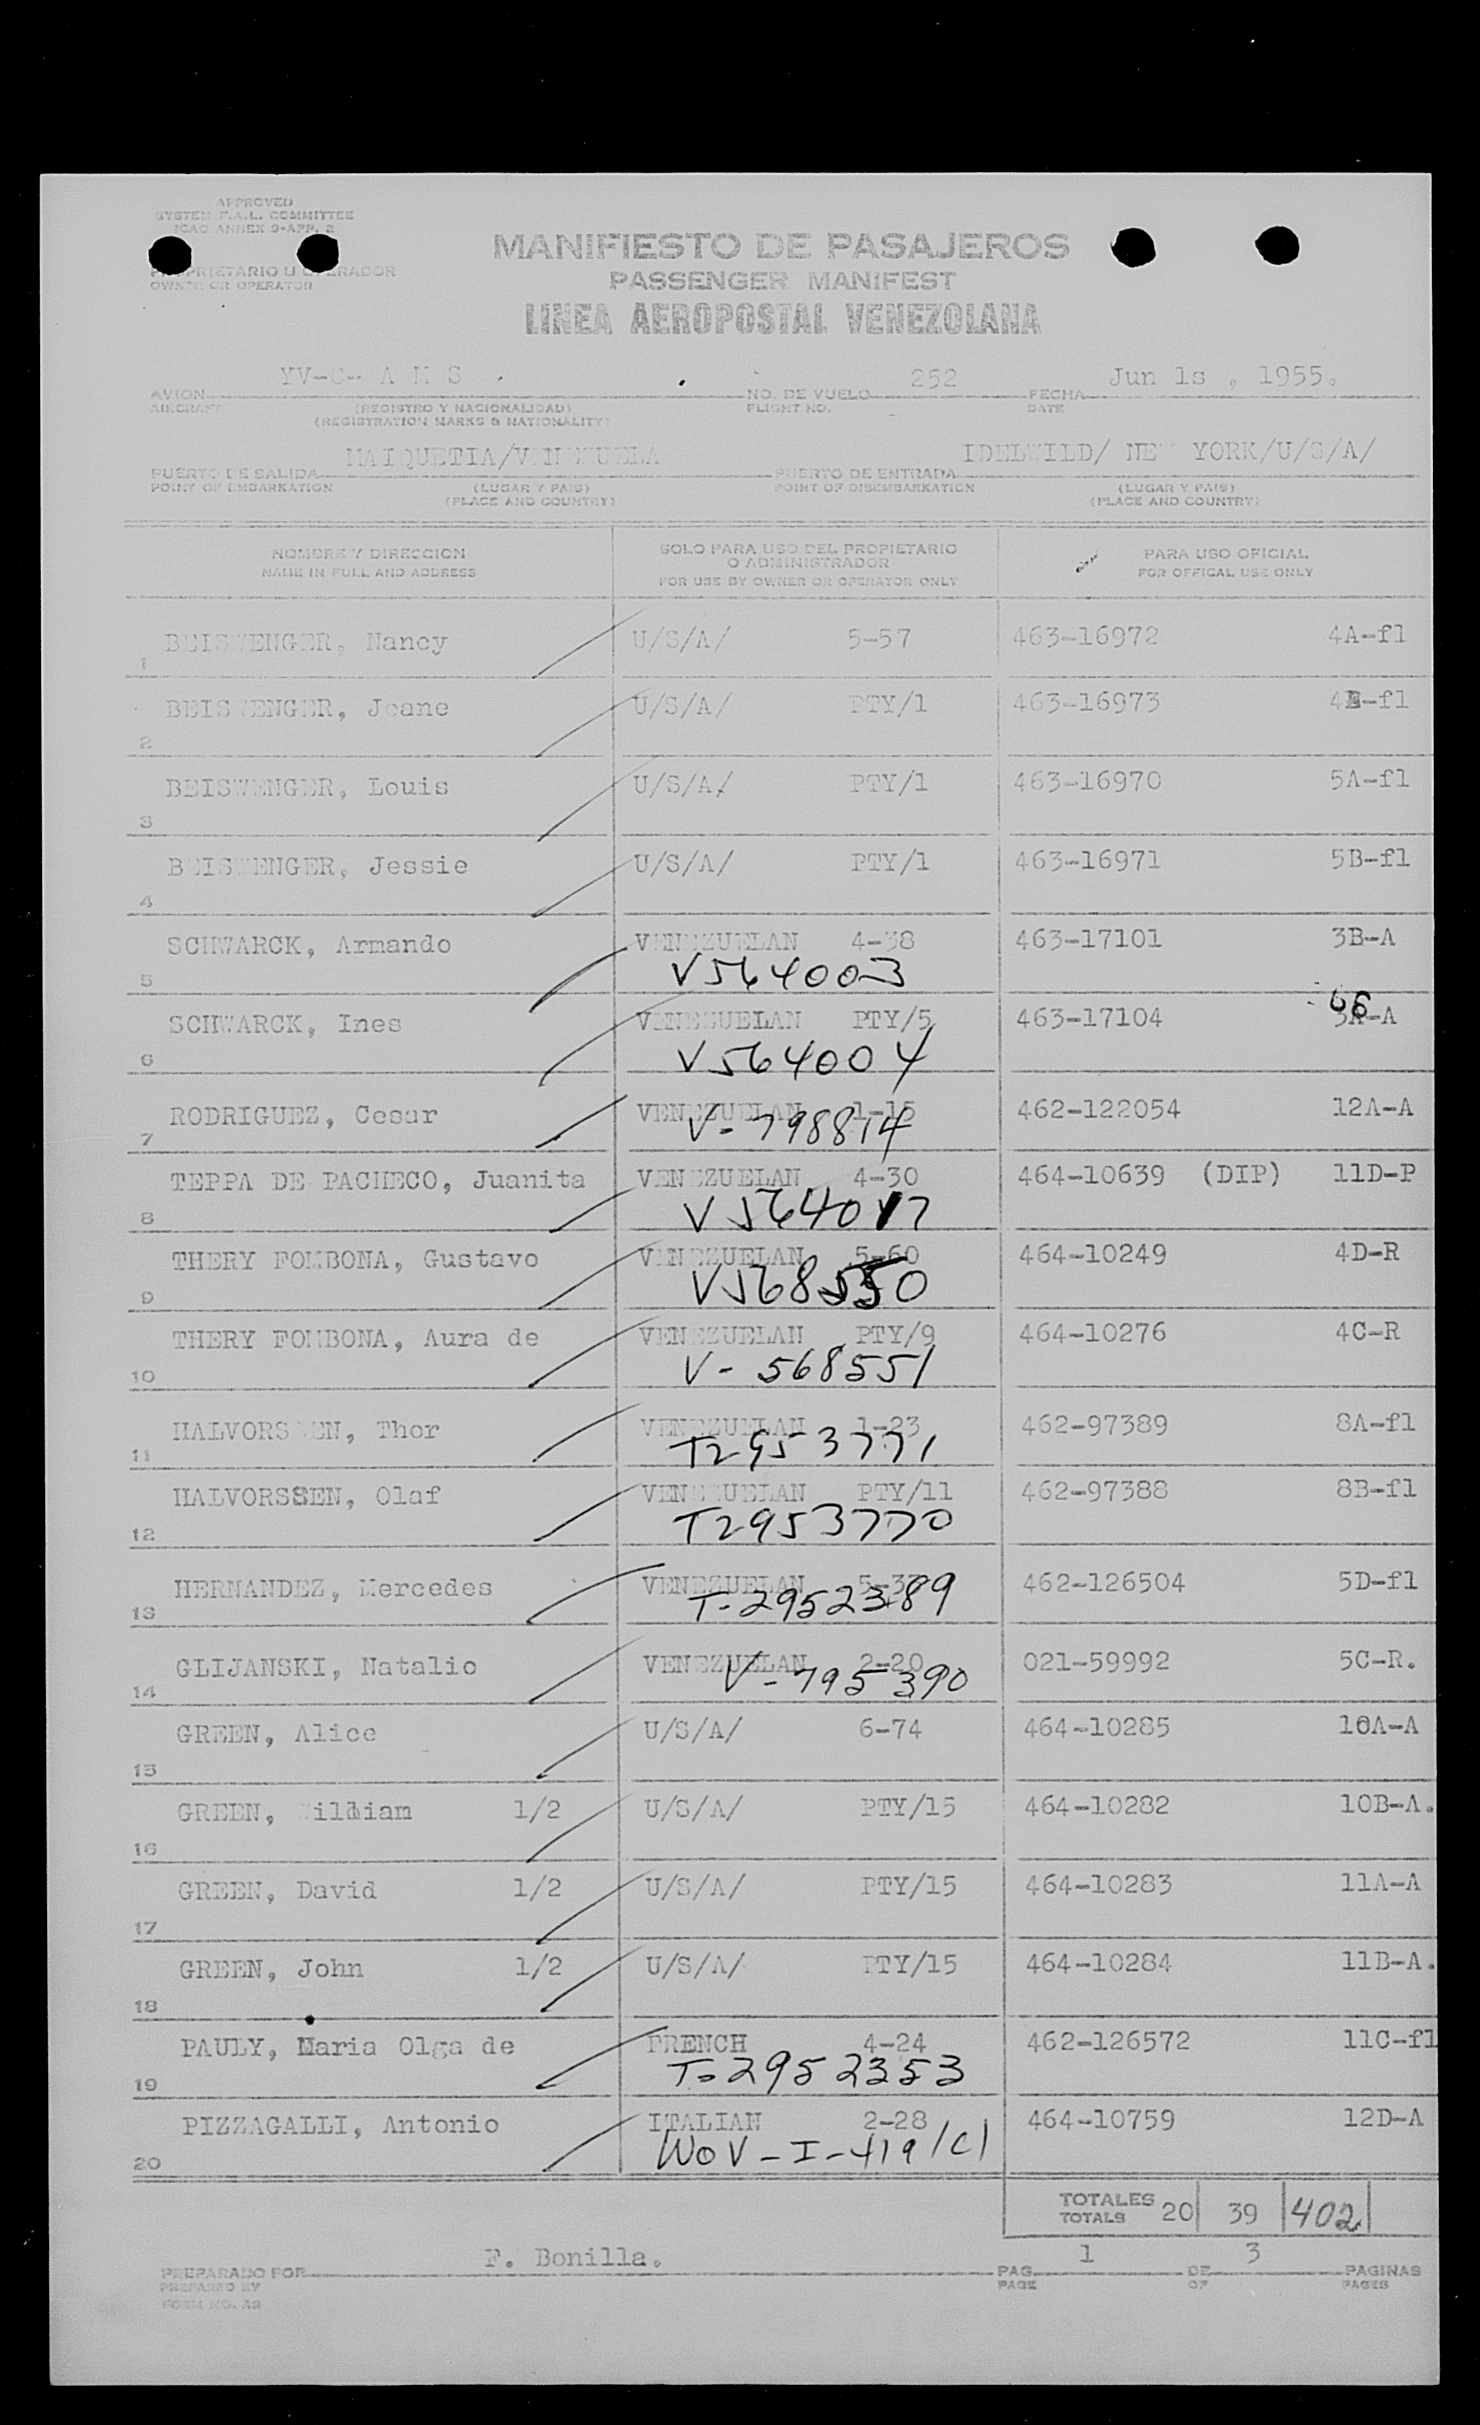 APPROVED
SYSTEM F.A.L. COMMITTEE
ICAO ANNEX 9-APP. 2
MANIFIESTO DE PASAJEROS
PASSENGER MANIFEST
LINEA AEROPOSTAL VENEZOLANA
PROPRIETARIO U OPERADOR
OWNER OR OPERATOR
YV-C- A M S . 252 Jun 1s , 1955.
AVION NO. DE VUELO FECHA
AIRCRAFT (REGISTRO Y NACIONALIDAD) FLIGHT NO. DATE
(REGISTRATION MARKS & NATIONALITY)
MAIQUETIA/VENEZUELA IDELWILD/ NEW YORK/U/S/A/
PUERTO DE SALIDA PUERTO DE ENTRADA
POINT OF EMBARKATION (LUGAR Y PAIS) POINT OF DISEMBARKATION (LUGAR Y PAIS)
(PLACE AND COUNTRY) (PLACE AND COUNTRY)
NOMBRE Y DIRECCION SOLO PARA USO DEL PROPIETARIO PARA USO OFICIAL
O ADMINISTRADOR
NAME IN FULL AND ADDRESS FOR USE BY OWNER OR OPERATOR ONLY FOR OFFICAL USE ONLY
1 BEISWENGER, Nancy U/S/A/ 5-57 463-16972 4A-fl
2 BEISWENGER, Joane U/S/A/ PTY/1 463-16973 4B-fl
3 BEISWENGER, Louis U/S/A/ PTY/1 463-16970 5A-fl
4 BEISWENGER, Jessie U/S/A/ PTY/1 463-16971 5B-fl
5 SCHWARCK, Armando VENEZUELAN 4-38 463-17101 3B-A
V564003
6 SCHWARCK, Ines VENEZUELAN PTY/5 463-17104 3A-A
V564004
7 RODRIGUEZ, Cesar VENEZUELAN 1-15 462-122054 12A-A
V-798814
8 TEPPA DE PACHECO, Juanita VENEZUELAN 4-30 464-10639 (DIP) 11D-P
V564017
9 THERY FOMBONA, Gustavo VENEZUELAN 5-60 464-10249 4D-R
V568550
10 THERY FOMBONA, Aura de VENEZUELAN PTY/9 464-10276 4C-R
V- 568551
11 HALVORSSEN, Thor VENEZUELAN 1-23 462-97389 8A-fl
T2953771
12 HALVORSSEN, Olaf VENEZUELAN PTY/11 462-97388 8B-fl
T2953770
13 HERNANDEZ, Mercedes VENEZUELAN 5-37 462-126504 5D-fl
T-2952389
14 GLIJANSKI, Natalio VENEZUELAN 2-20 021-59992 5C-R.
V-795390
15 GREEN, Alice U/S/A/ 6-74 464-10285 10A-A
16 GREEN, William 1/2 U/S/A/ PTY/15 464-10282 10B-A.
17 GREEN, David 1/2 U/S/A/ PTY/15 464-10283 11A-A
18 GREEN, John 1/2 U/S/A/ PTY/15 464-10284 11B-A.
19 PAULY, Maria Olga de FRENCH 4-24 462-126572 11C-fl
T-2952353
20 PIZZAGALLI, Antonio ITALIAN 2-28 464-10759 12D-A
WOV-I-419/C1
TOTALES 20 39 402
TOTALS
F. Bonilla. 1 3
PREPARADO POR PAG. DE PAGINAS
PREPARED BY PAGE OF PAGES
FORM NO. A2